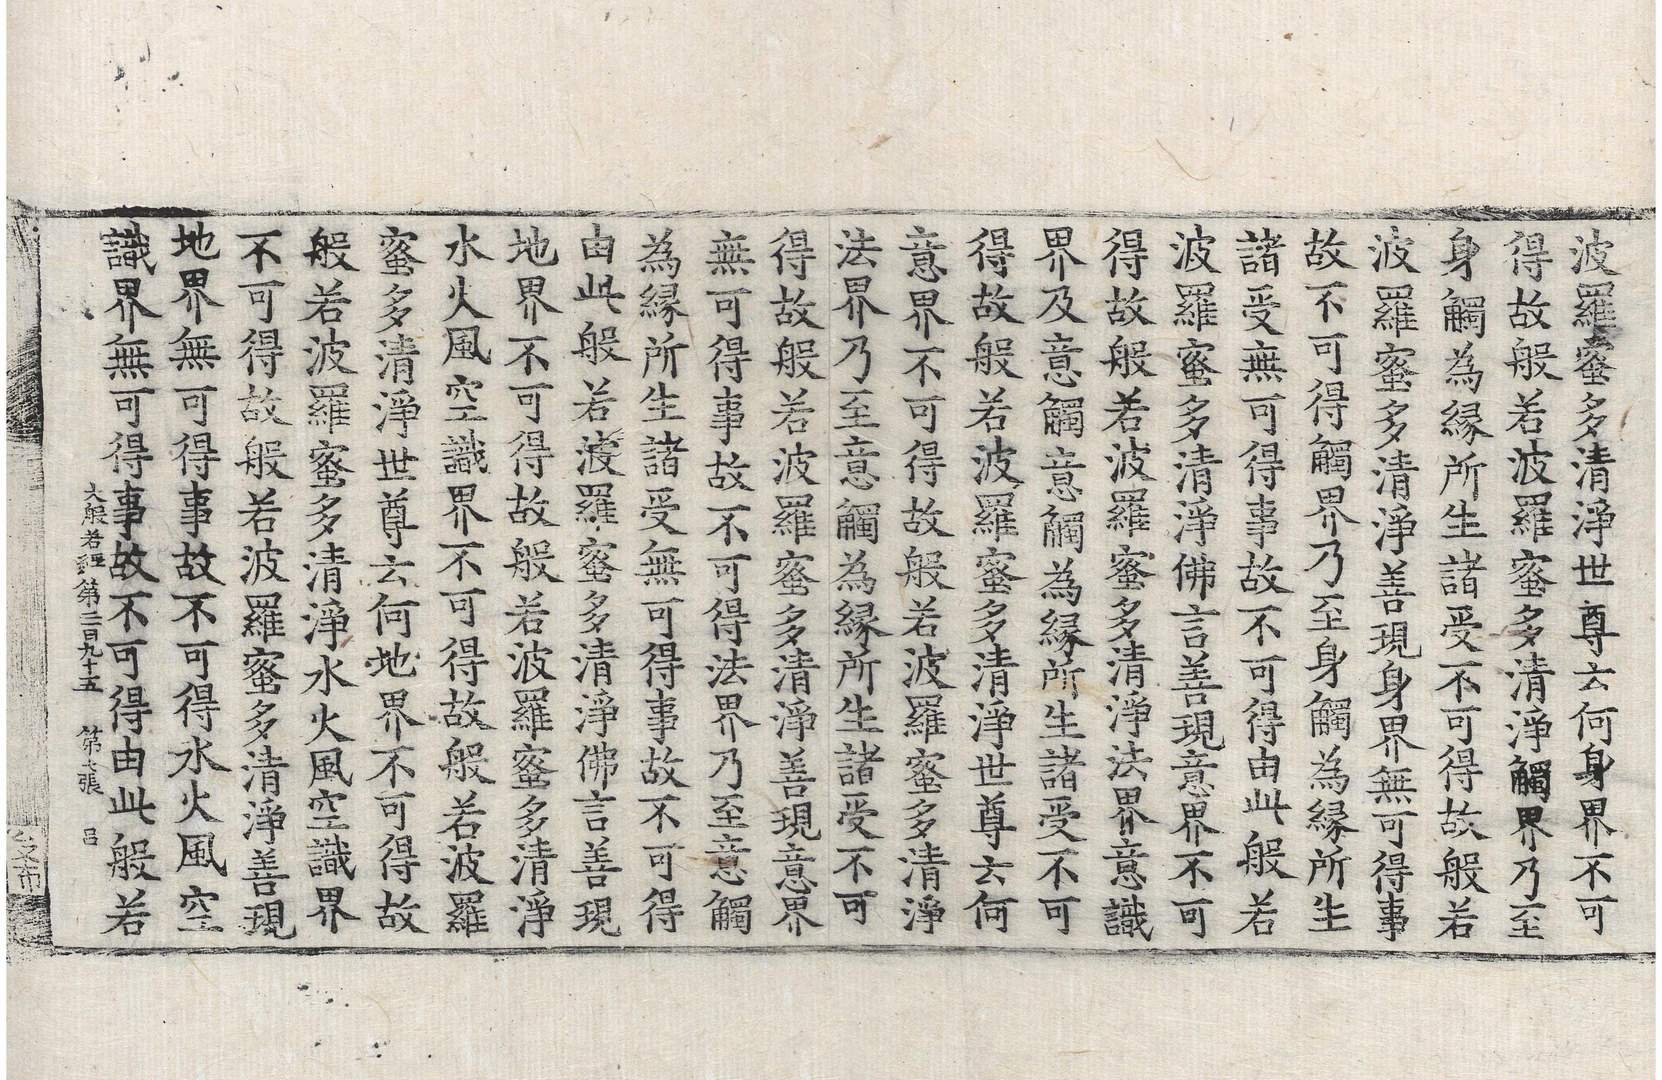 波羅蜜多清淨世尊云何身界不可
得故般若波羅蜜多清淨觸界乃至
身觸為緣所生諸受不可得故般若
波羅蜜多清淨善現身界無可得事
故不可得觸界乃至身觸為緣所生
諸受無可得事故不可得由此般若
波羅蜜多清淨佛言善現意界不可
得故般若波羅蜜多清淨法界意識
界及意觸意觸為緣所生諸受不可
得故般若波羅蜜多清淨世尊云何
意界不可得故般若波羅蜜多清淨
法界乃至意觸為緣所生諸受不可
得故般若波羅蜜多清淨善現意界
無可得事故不可得法界乃至意觸
為緣所生諸受無可得事故不可得
由此般若波羅蜜多清淨佛言善現
地界不可得故般若波羅蜜多清淨
水火風空識界不可得故般若波羅
蜜多清淨世尊云何地界不可得故
般若波羅蜜多清淨水火風空識界
不可得故般若波羅蜜多清淨善現
地界無可得事故不可得水火風空
識界無可得事故不可得由此般若
大般若經第二百九十五 第七張 呂